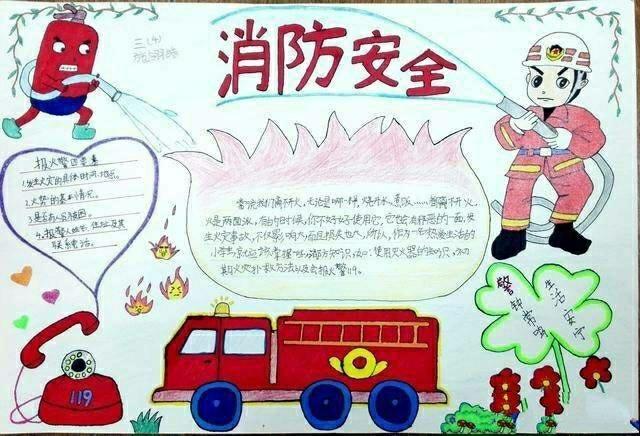 三(4)
消防安全
报火警四要素
1.发生火灾的具体时间、地点。
2.火势的基本情况。
3.是否有人员被困。
4.报警人姓名、住址及其
联系电话。
首先我们离不开火,无论是
都离不开火,
火是两面派,有的时候,你不好好使用它,它
的一面,发
生火灾事故,不仅影响大,而且损失也大,所以,作为一名
生活的
小学生,就应该掌握一些消防知识,如:使用灭火器的知识,初
期火灾扑救方法以及会报火警119。
警钟常鸣
生活安宁
119